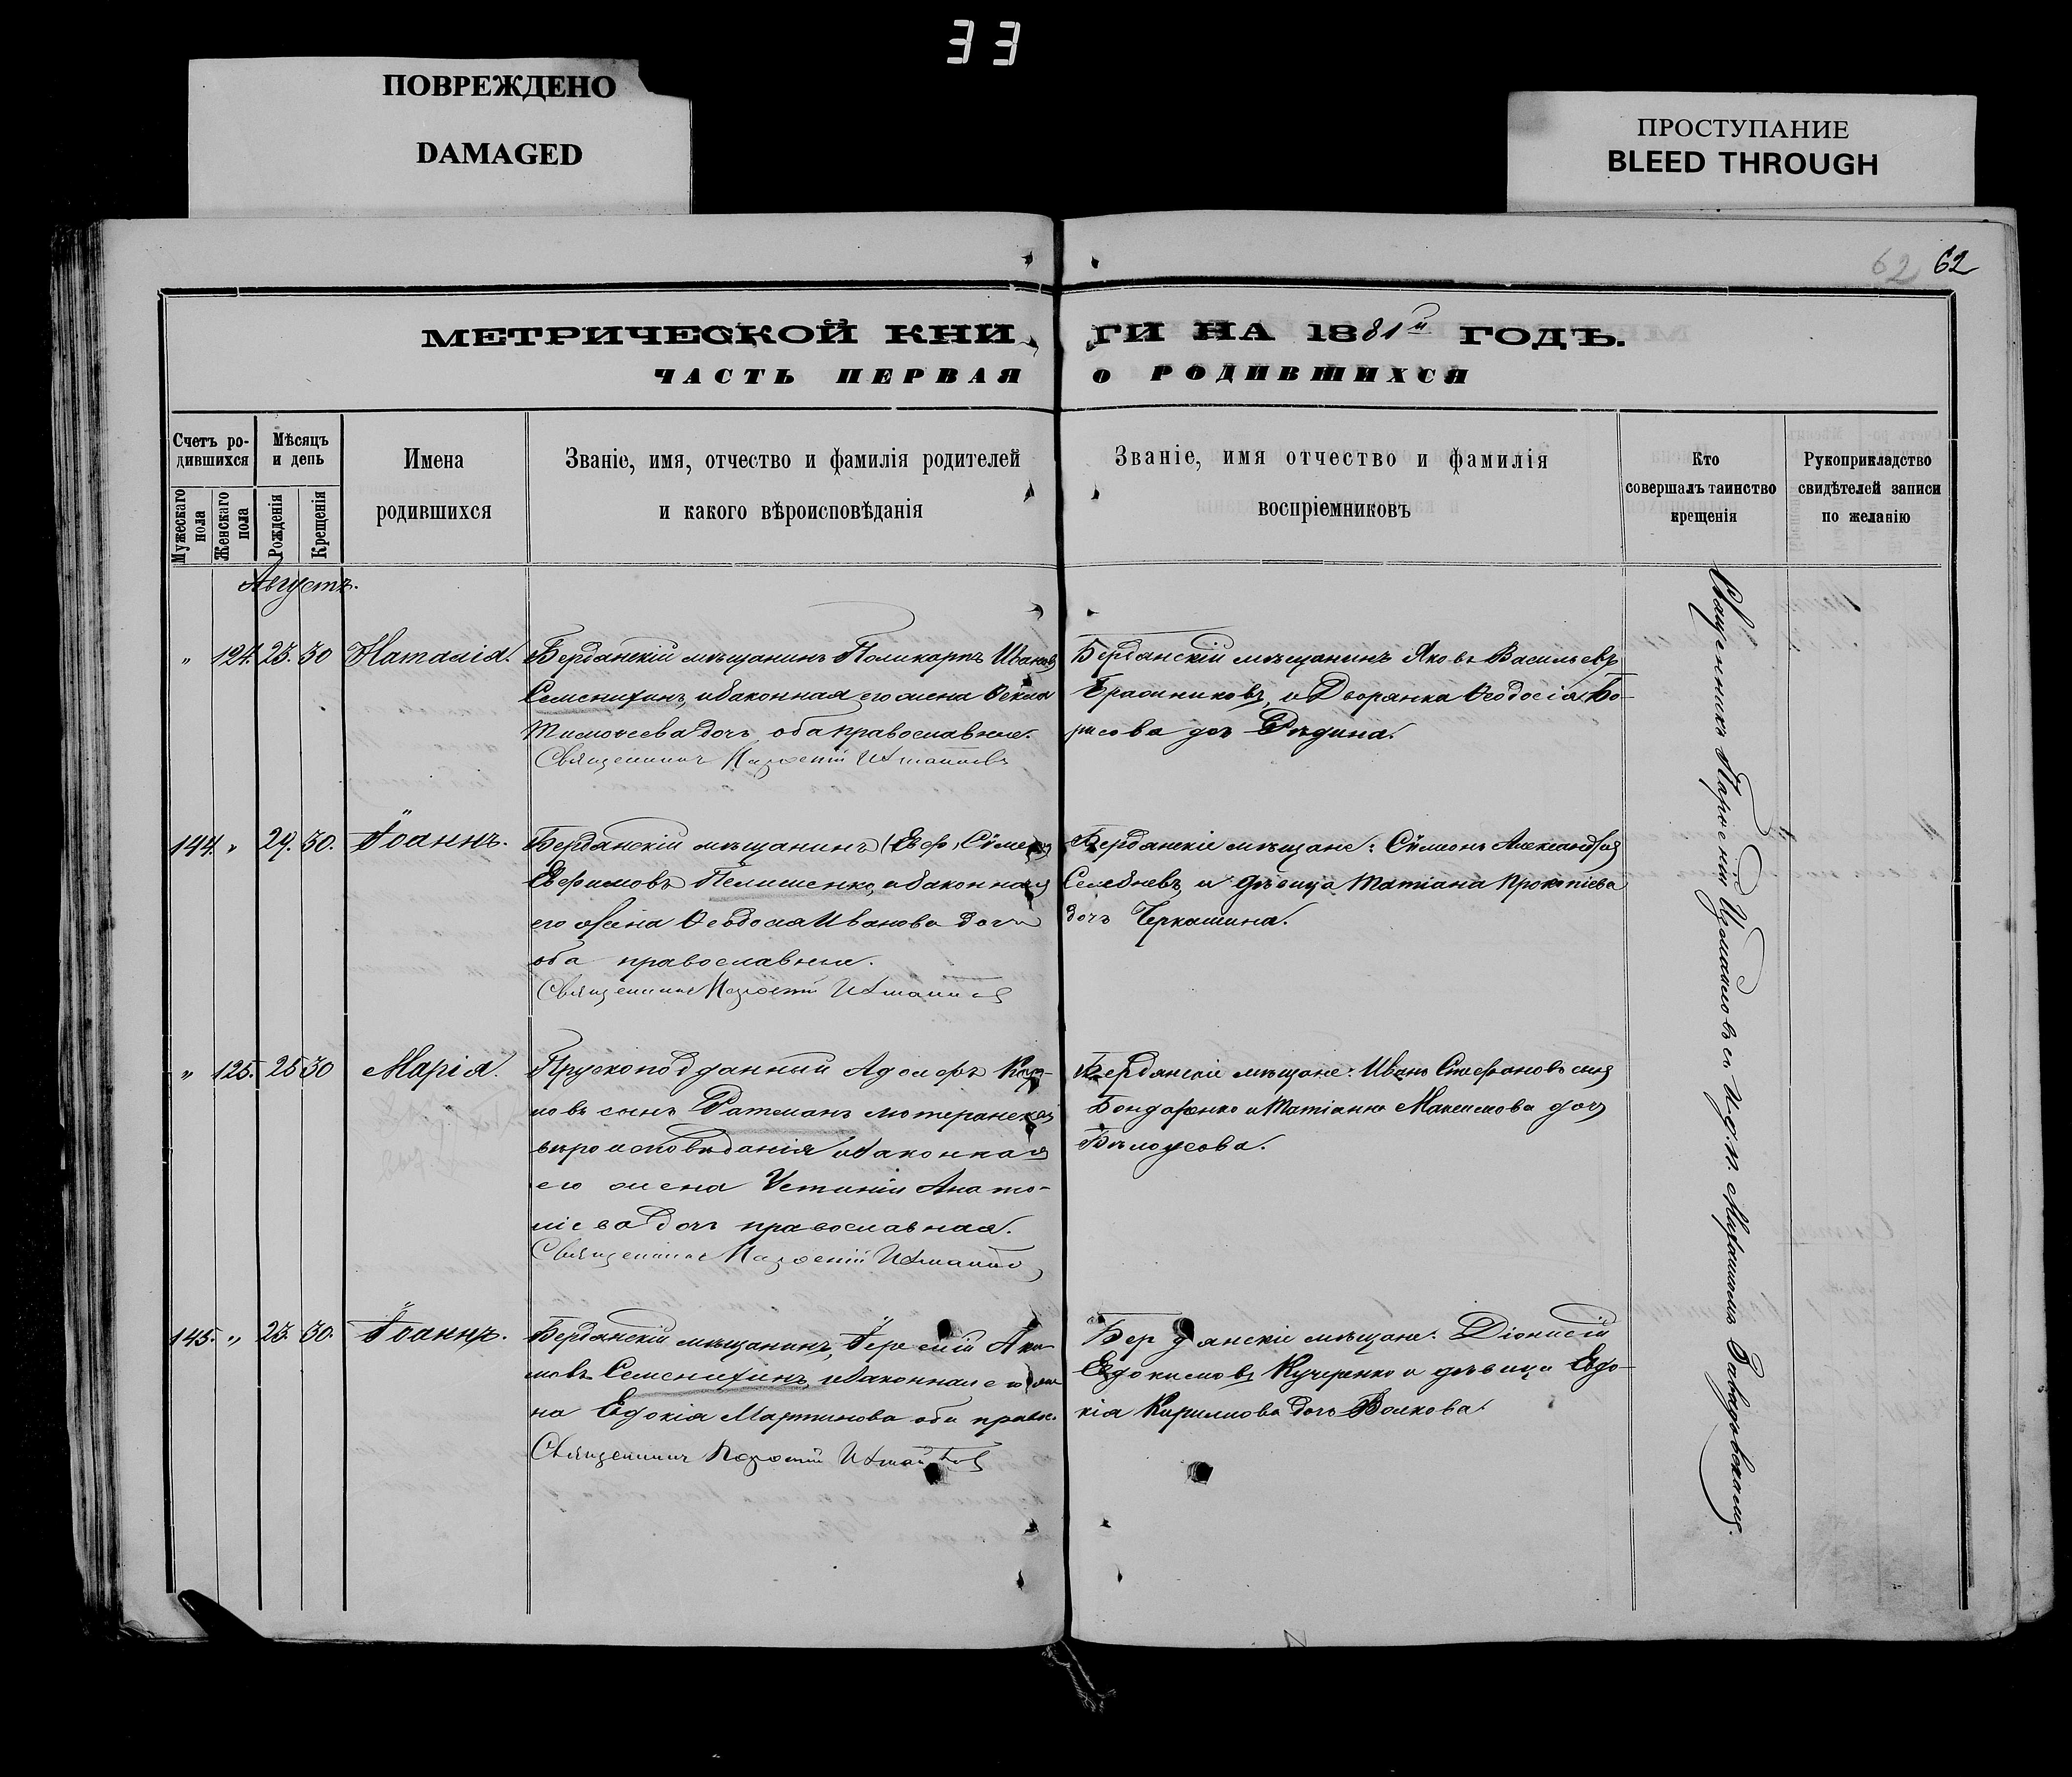 33
ПОВРЕЖДЕНО
DAMAGED
ПРОСТУПАНИЕ
BLEED THROUGH
62 62
МЕТРИЧЕСКОЙ КНИ ГИ НА 1881й ГОДЪ.
ЧАСТЬ ПЕРВАЯ О РОДИВШИХСЯ
Счетъ ро-
дившихся
Мужескаго пола
Женскаго пола
Мѣсяцъ
и день
Рожденія
Крещенія
Имена
родившихся
Званіе, имя, отчество и фамилія родителей
и какого вѣроисповѣданія
Званіе, имя отчество и фамилія
воспріемниковъ
Кто
совершалъ таинство
крещенія
Рукоприкладство
свидѣтелей записи
по желанію
Августъ.
" 124. 23. 30 Наталія.
Бердянскій мѣщанинъ Поликарпъ Ивановъ
Семенихинъ, и законная его жена Ѳекла
Тимоѳеева дочь, оба православные.
Священникъ Парѳеній
Бердянскій мѣщанинъ Яковъ Васильевъ
и Дворянка Ѳеодосія Бо-
рисова дочь
144. " 29. 30. Іоаннъ.
Бердянскій мѣщанинъ
Евфимовъ и законная
его жена Ѳеодосія Иванова дочь
оба православные.
Священникъ Парѳеній
Бердянскіе мѣщане: Сѵмеонъ
и дѣвица Татіана Прокопіева
дочь Черкашина.
" 125. 25 30 Марія.
Прусскоподданный Адольфъ
новъ сынъ Ратманъ лютеранскаго
вѣроисповѣданія и законная
его жена Устинія Анато-
ліева дочь православная.
Священникъ Парѳеній
Бердянскіе мѣщане: Иванъ Стефановъ сынъ
Бондаренко и Татіана Максимова дочь
Бѣлоусова.
145. " 23. 30. Іоаннъ.
Бердянскій мѣщанинъ,
Семенихинъ, и законная его же-
на Евдокія Мартинова оба правосл.
Священникъ Парѳеній
Бердянскіе мѣщане: Діонисій
Евдокимовъ Кучеренко и дѣвица Евдо-
кія Кириллова дочь Волкова.
Священникъ Парѳеній съ И. д. п. Михаиломъ Завадовскимъ.